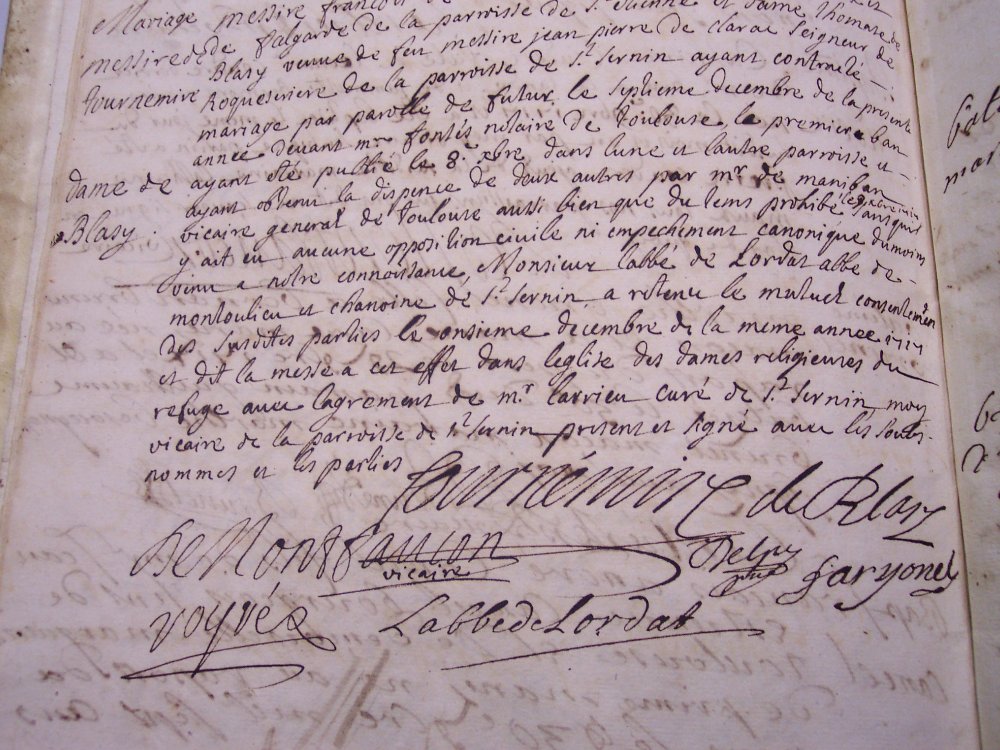 Mariage messire francois de
messire de de falgarde de la parroisse de St Etienne et dame thomase de
Blasy veuve de feu messire jean pierre de Clarac Seigneur de
tournemire Roqueseriere de la parroisse de St Sernin ayant contracté
mariage par parolle de futur le septieme decembre de la presente
année devant mre fontés notaire de toulouse le premiere ban
dame de ayant eté publié le 8e xbre dans lune et lautre parroisse et
ayant obtenu la dispence de deux autres par mr de maniban
Blasy. vicaire general de toulouse aussi bien que du tems prohibé sans quil
y ait eu aucune opposition civile ni empechement canonique du moins
venu a notre connoissance, Monsieur labbé de Lordat abbe de
montoulieu et chanoine de St Sernin a retenu le mutuel consentement
des susdites parties le onsieme decembre de la meme année 1717
et dit la messe a cet effet dans leglise des dames religieuses du
refuge avec lagrement de mr Carrieu curé de St Sernin, moy
vicaire de la parroisse de St Sernin present et signé avec les sous-
nommes et les parties
Tournémire de Blasy
De Montfaucon
vicaire
Delpy
faryonel
voyvéz Labbé de Lordat